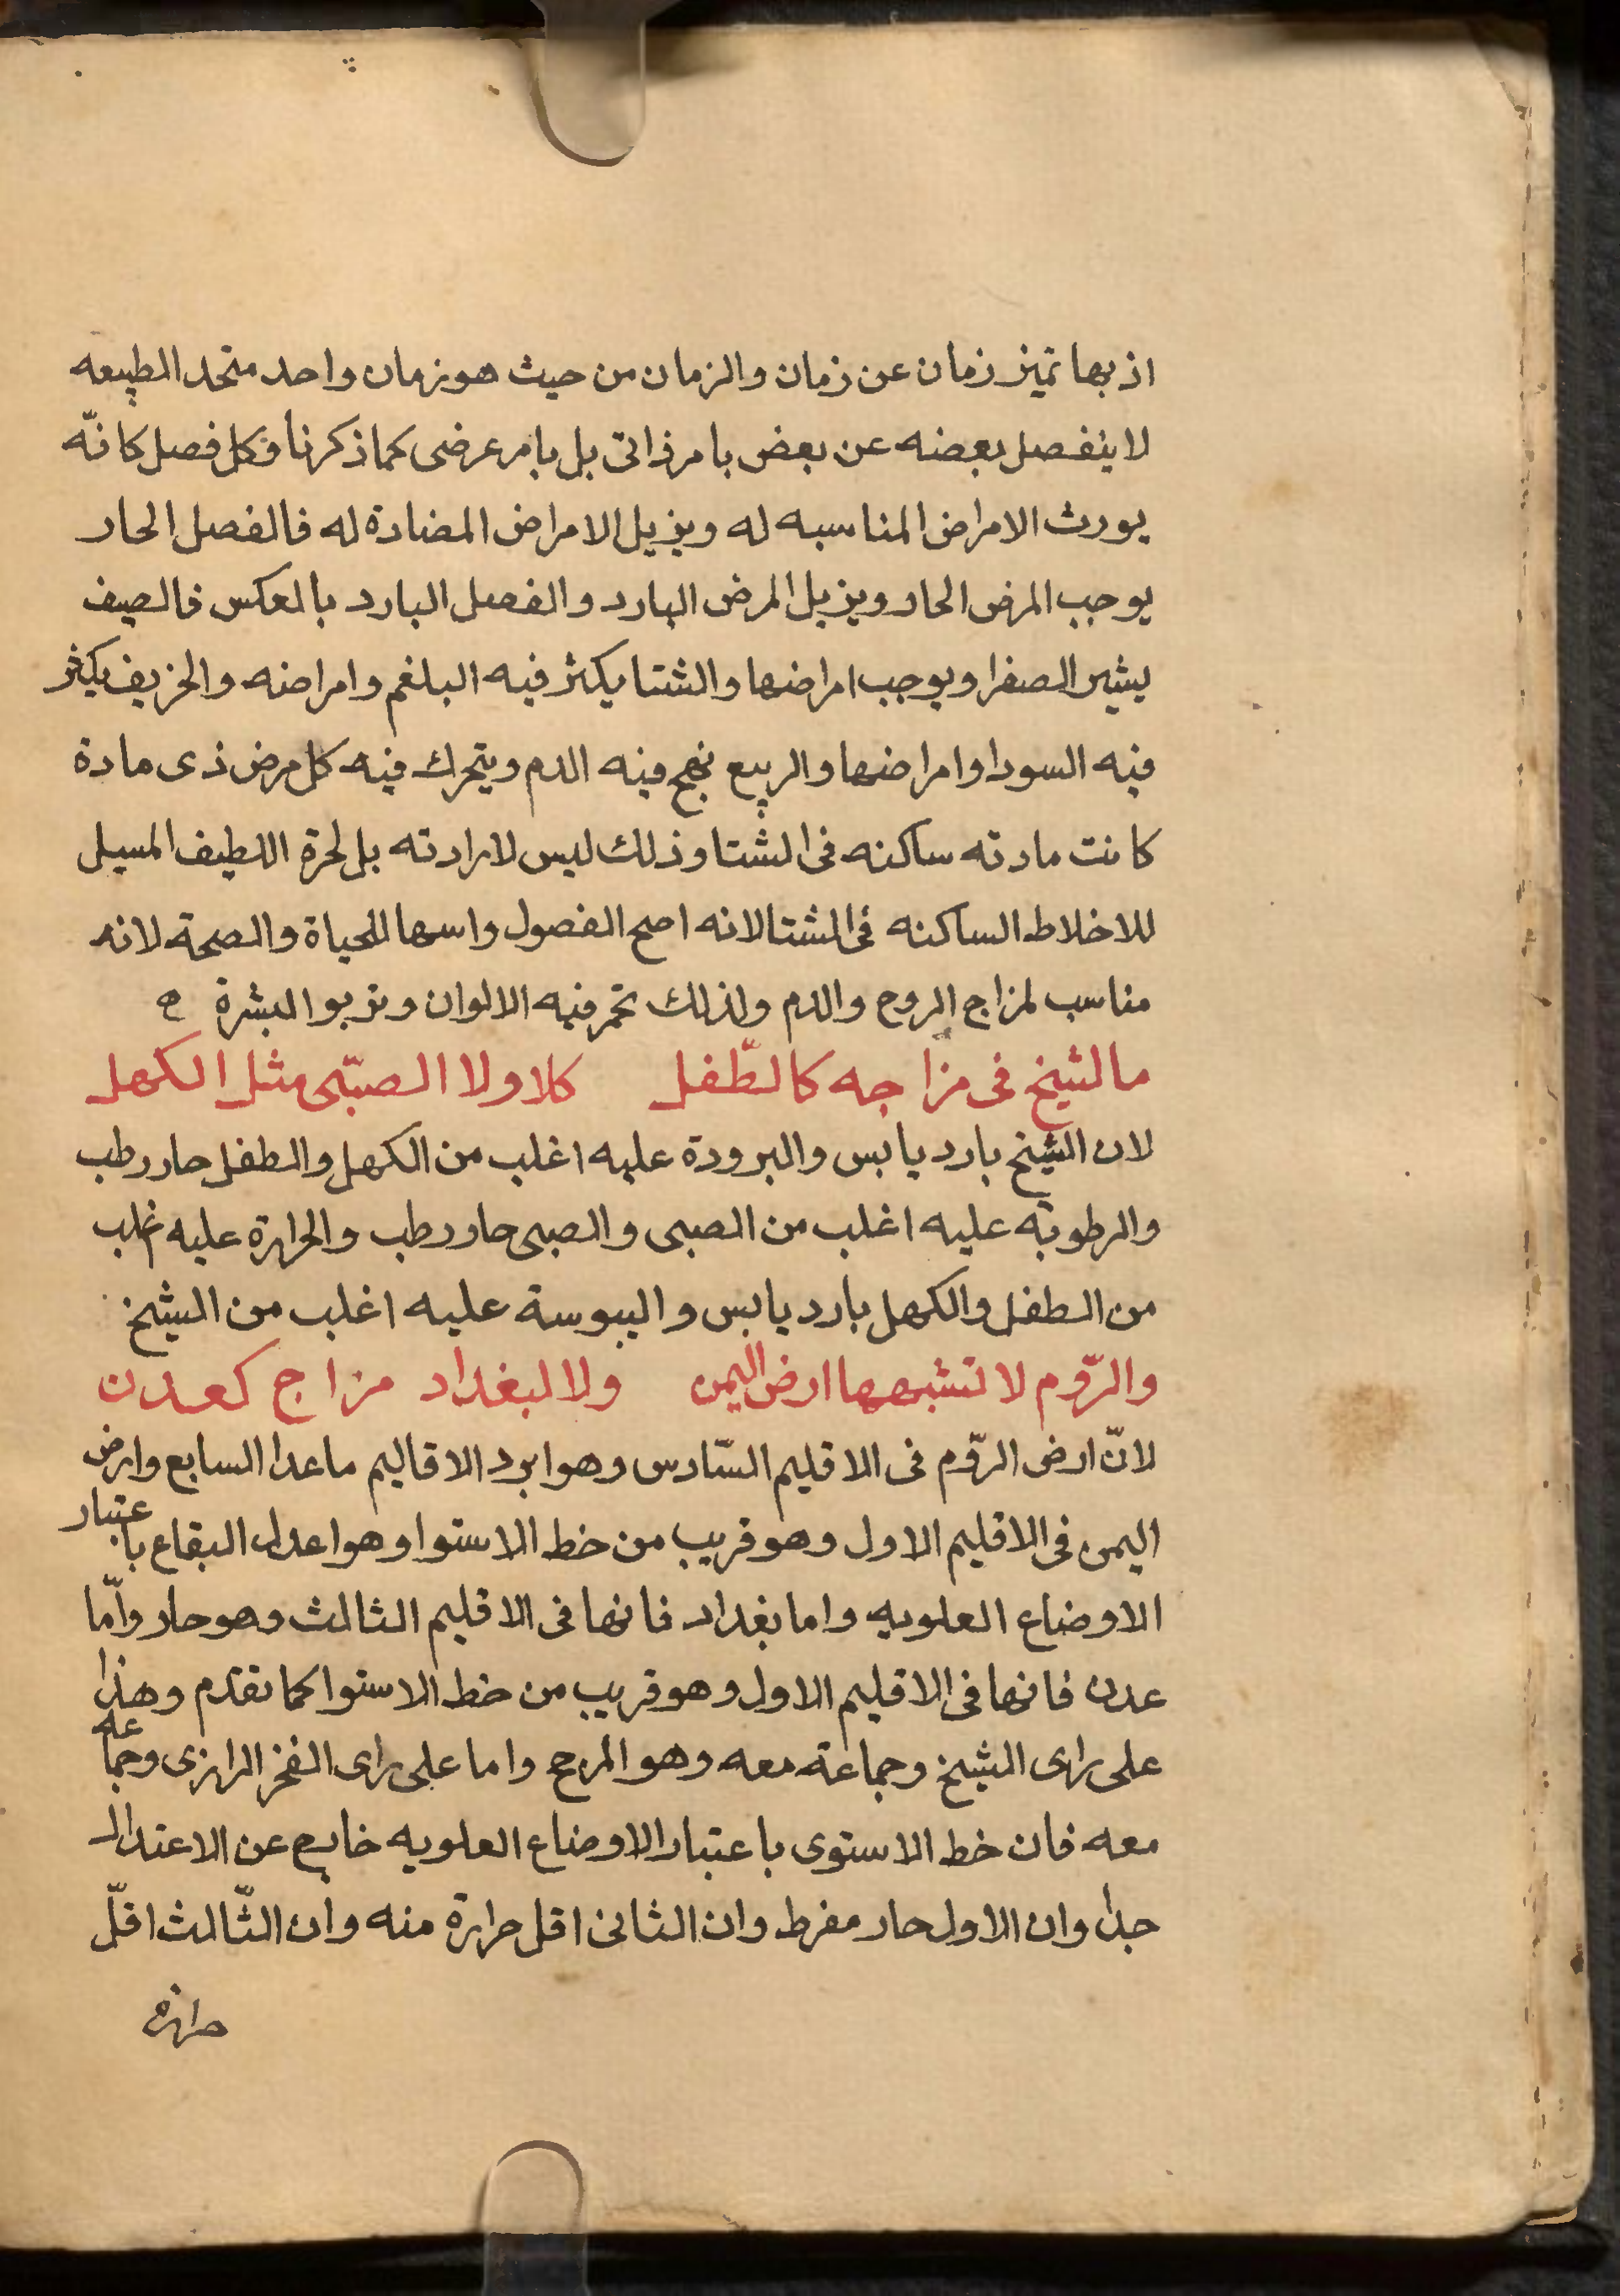 اذ بها تميز زمان عن زمان والزمان من حيث هو زمان واحد متحد الطبيعه
لا ينفصل بعضه عن بعض بامر ذاتى بل بامر عرضى كما ذكرنا فكل فصل كانّه
يورث الامراض المناسبه له ويزيل الامراض المضادة له فالفصل الحار
يوجب المرض الحار ويزيل المرض البارد والفصل البارد بالعكس فالصيف
يثير الصفرا ويوجب امراضها والشتا يكثر فيه البلغم وامراضه والخريف يكثر
فيه السودا وامراضها والربيع يهيج فيه الدم ويتحرك فيه كل مرض ذى مادة
كانت مادته ساكنه فى الشتا وذلك ليس لاراداته بل لحرة اللطيف المسيل
للاخلاط الساكنه فى الشتا لانه اصح الفصول واسها للحياة والصحة لانه
مناسب لمزاج الروح والدم ولذلك تحمر فيه الالوان وتربو البشرة ه
ما الشيخ فى مزاجه كالطّفل كلا ولا الصبّى مثل الكهل
لان الشيخ بارد يابس والبرودة عليه اغلب من الكهل والطفل حار رطب
والرطوبة عليه اغلب من الصبى والصبى حار رطب والحرارة عليه اغلب
من الطفل والكهل بارد يابس واليبوسة عليه اغلب من الشيخ
والرّوم لا تشبهها ارض اليمن ولا لبغداد مزاج كعدن
لانّ ارض الرّوم فى الاقليم السّادس وهو ابرد الاقاليم ما عدا السابع وارض
اليمن فى الاقليم الاول وهو قريب من خط الاستوا وهو اعدل البقاع باعتبار
الاوضاع العلويه واما بغداد فانها فى الاقليم الثالث وهو حار وأمّا
عدن فانها فى الاقليم الاول وهو قريب من خط الاستوا كما تقدم وهذا
على راى الشيخ وجماعة معه وهو المرجح واما على راى الفخر الرازى وجماعه
معه فان خط الاستوى باعتبار الاوضاع العلويه خارج عن الاعتدال
جدا وان الاول حار مفرط وان الثانى اقل حرارة منه وان الثّالث اقلّ
حرارة